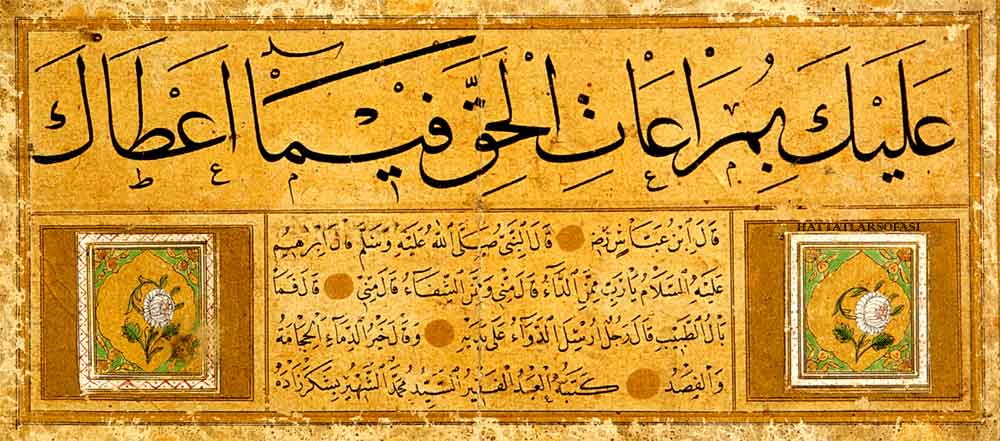 عَلَيْكَ بِمُرَاعَاتِ الْحَقِّ فِيْمَا اَعْطَاكَ
HATTATLARSOFASI
قَالَ ابْنُ عَبَّاسٍ رض قَالَ النَّبِيُّ صَلَّى اللّٰهُ عَلَيْهِ وَسَلَّمَ قَالَ اِبْرٰهِيمُ
عَلَيْهِ السَّلَامُ يَا رَبِّ مِمَّنِ الدَّاءُ قَالَ مِنِّي وَمِمَّنِ الشِّفَاءُ قَالَ مِنِّي قَالَ فَمَا
بَالُ الطَّبِيبِ قَالَ رَجُلٌ اُرْسِلَ الدَّوَاءُ عَلَى يَدَيْهِ وَقَالَ خَيْرُ الدَّوَاءِ الْحِجَامَةُ
وَالْفَصْدُ كَتَبَهُ الْعَبْدُ الْفَقِيرُ السَّيِّدُ مُحَمَّدُ الشَّهِيرُ بِشَكَرْزَادَهْ